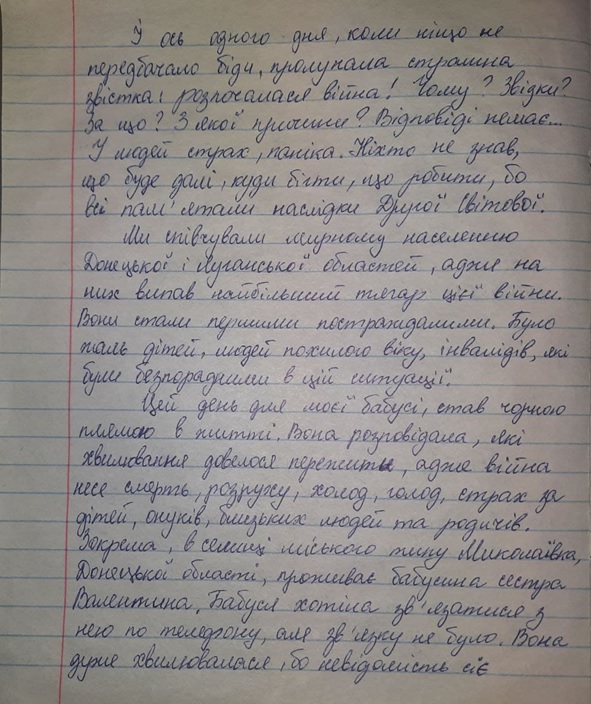 І ось одного дня, коли ніщо не
передбачало біди, пролунала страшна
звістка: розпочалася війна! Чому? Звідки?
За що? З якої причини? Відповіді немає...
У людей страх, паніка. Ніхто не знав,
що буде далі, куди бігти, що робити, бо
всі пам'ятали наслідки Другої Світової.
Ми співчували мирному населенню
Донецької і Луганської областей, адже на
них випав найбільший тягар цієї війни.
Вони стали першими постраждалими. Було
жаль дітей, людей похилого віку, інвалідів, які
були безпорадними в цій ситуації.
Цей день для моєї бабусі, став чорною
плямою в житті. Вона розповідала, які
хвилювання довелося пережити, адже війна
несе смерть, розруху, холод, голод, страх за
дітей, онуків, близьких людей та родичів.
Зокрема, в селищі міського типу Миколаївка,
Донецької області, проживає бабусина сестра
Валентина. Бабуся хотіла зв'язатися з
нею по телефону, але зв'язку не було. Вона
дуже хвилювалася, бо невідомість сіє